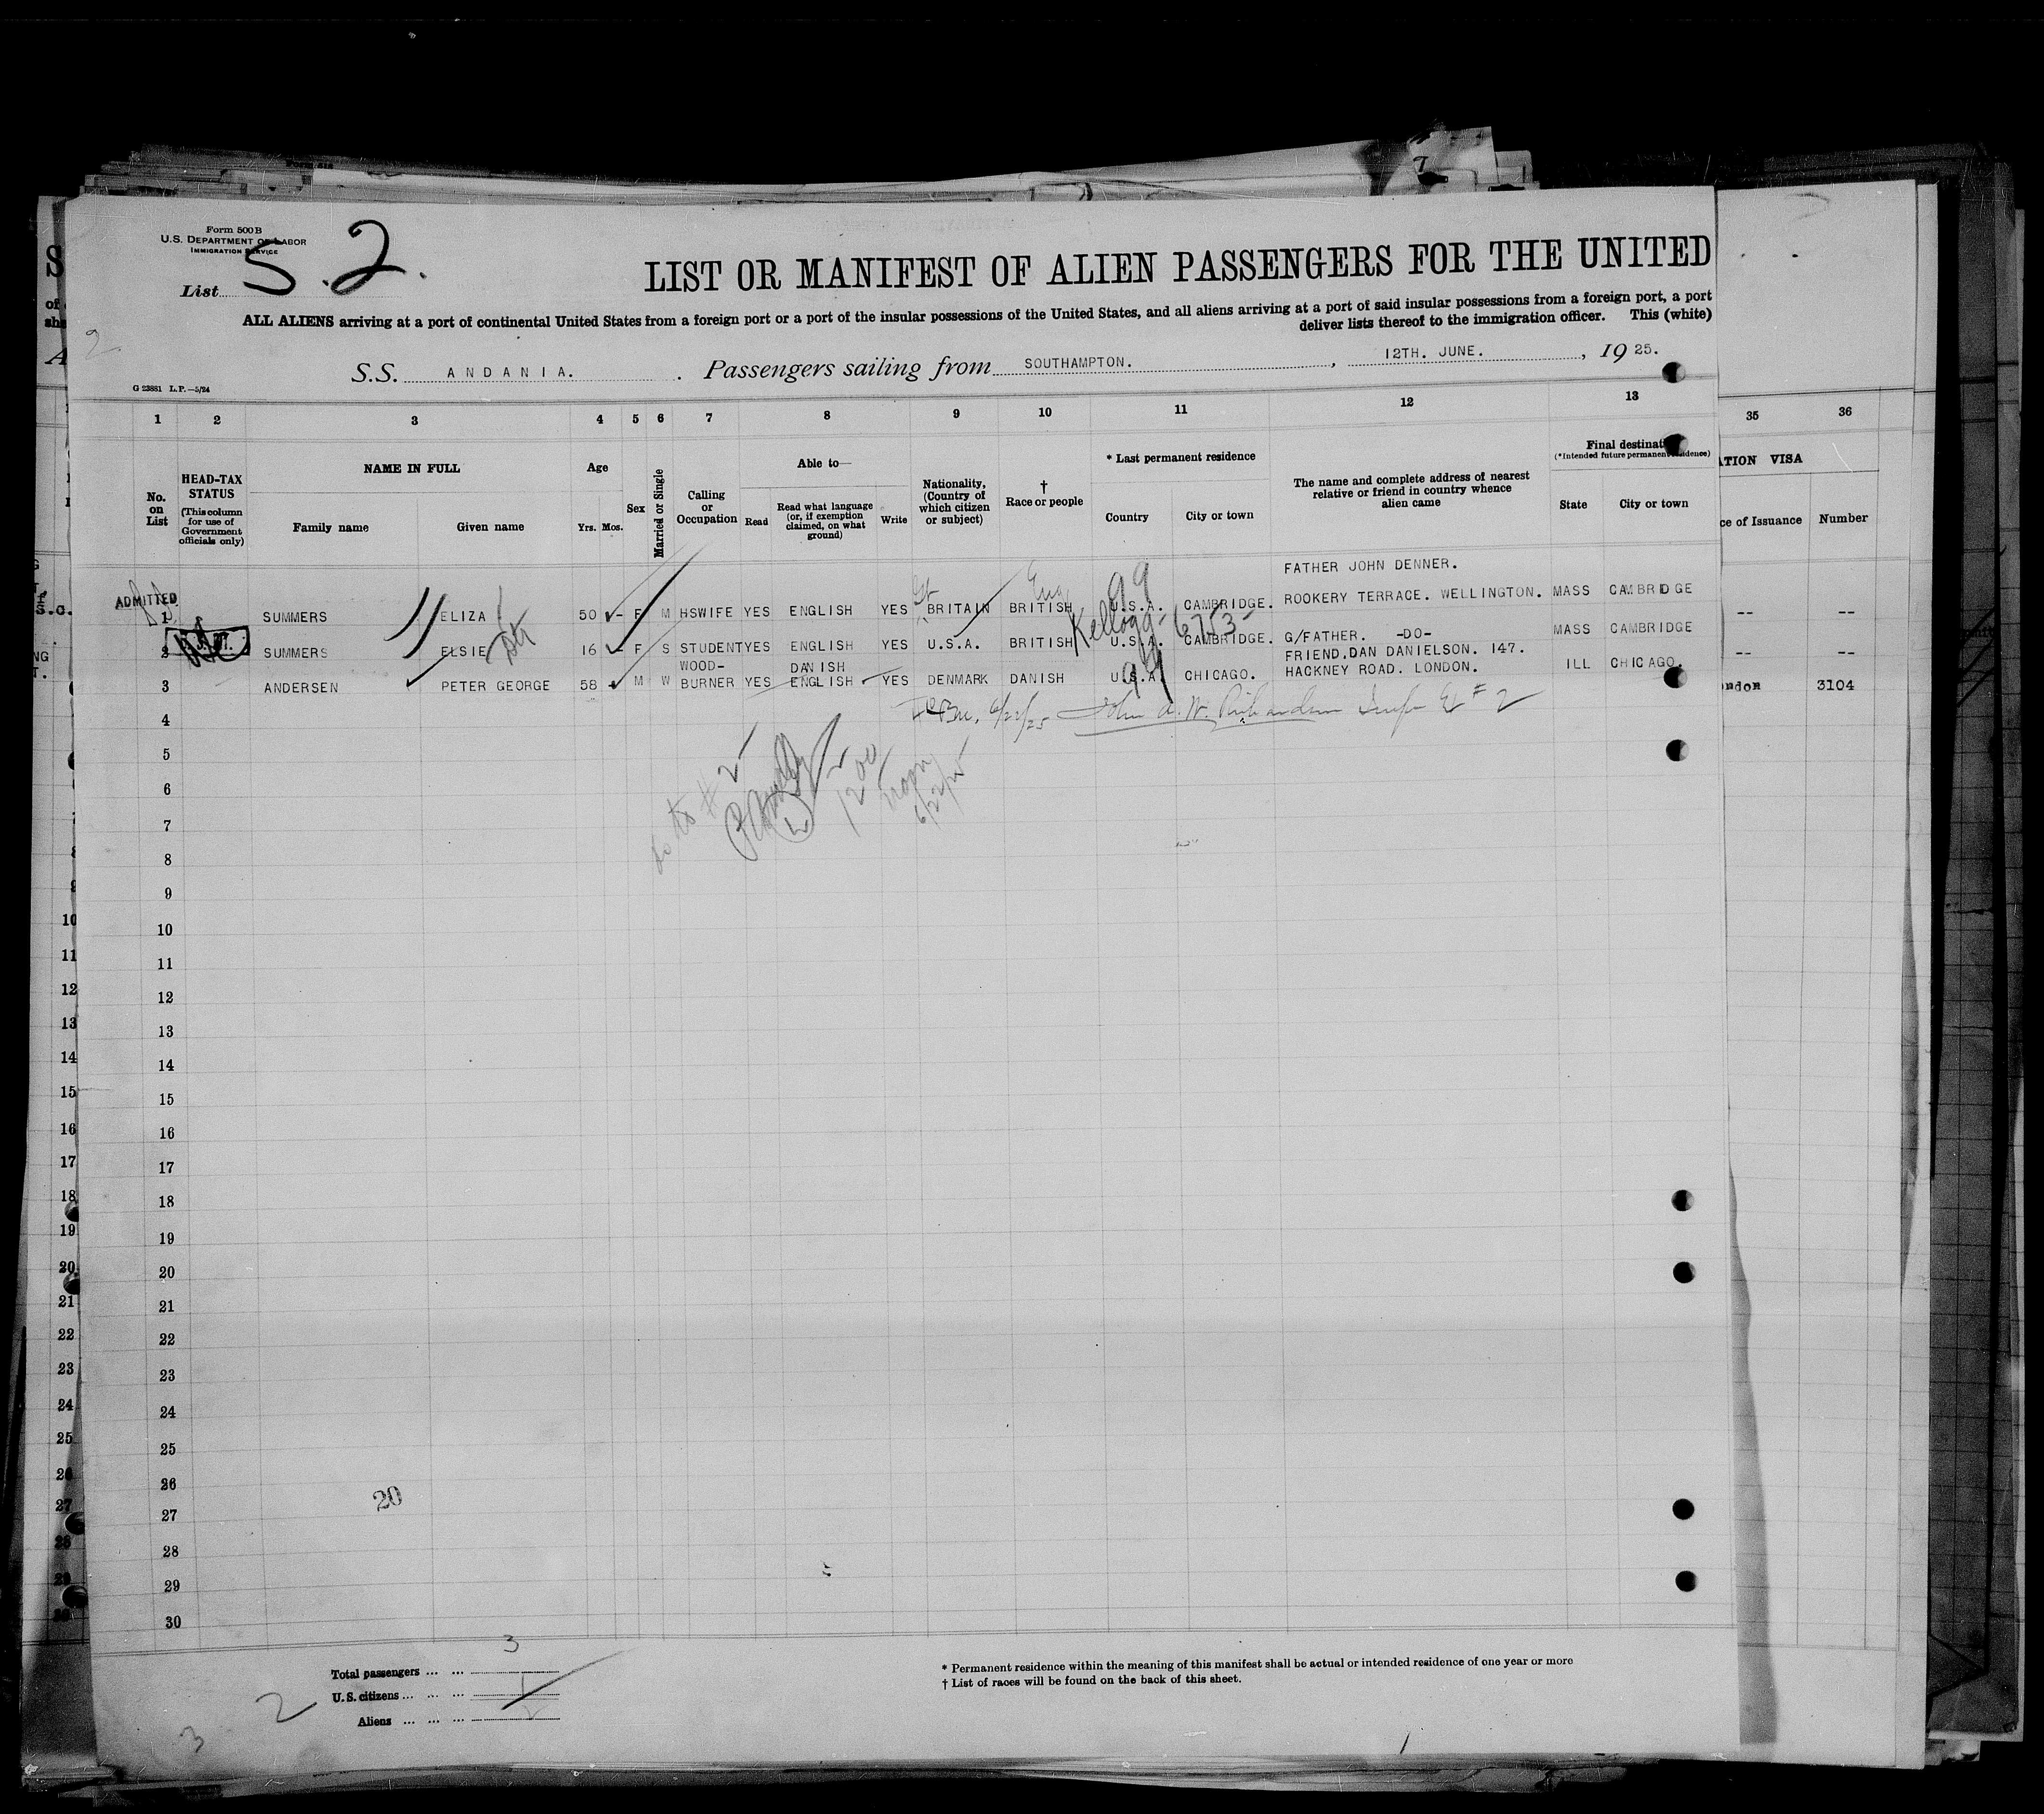 Form 500 B
U.S. DEPARTMENT OF LABOR
IMMIGRATION SERVICE
List S.2.
LIST OR MANIFEST OF ALIEN PASSENGERS FOR THE UNITED
ALL ALIENS arriving at a port of continental United States from a foreign port or a port of the insular possessions of the United States, and all aliens arriving at a port of said insular possessions from a foreign port, a port
deliver lists thereof to the immigration officer. This (white)
2
S.S. ANDANIA. Passengers sailing from SOUTHAMPTON. , 12TH. JUNE. , 1925.
G 23881 L.P.—5/24
1 2 3 4 5 6 7 8 9 10 11 12 13 35 36
No. on List
HEAD-TAX STATUS (This column for use of Government officials only)
NAME IN FULL
Family name Given name
Age
Yrs. Mos.
Sex
Married or Single
Calling or Occupation
Able to—
Read
Read what language (or, if exemption claimed, on what ground)
Write
Nationality, (Country of which citizen or subject)
† Race or people
* Last permanent residence
Country City or town
The name and complete address of nearest relative or friend in country whence alien came
Final destinat
(*Intended future permanent residence)
State City or town
ATION VISA
ce of Issuance Number
FATHER JOHN DENNER.
ADMITTED
1 SUMMERS ELIZA 50 - F M HSWIFE YES ENGLISH YES Gt BRITAIN BRITISH Eng U.S.A. CAMBRIDGE. ROOKERY TERRACE. WELLINGTON. MASS CAMBRIDGE -- --
Kellogg- 6753-
2 SUMMERS ELSIE 16 - F S STUDENT YES ENGLISH YES U.S.A. BRITISH U.S.A. CAMBRIDGE. G/FATHER. -DO- MASS CAMBRIDGE -- --
WOOD- DANISH FRIEND.DAN DANIELSON. 147.
3 ANDERSEN PETER GEORGE 58 - M W BURNER YES ENGLISH YES DENMARK DANISH U.S.A. CHICAGO. HACKNEY ROAD. LONDON. ILL CHICAGO. ondon 3104
6/22/25 John A. W. Richardson # 2
4
5
6
7
8
9
10
11
12
13
14
15
16
17
18
19
20
21
22
23
24
25
26
20
27
28
29
30
3
Total passengers ... ...
U.S. citizens ... ... ... 1
Aliens ... ... ... 2
2
3
* Permanent residence within the meaning of this manifest shall be actual or intended residence of one year or more
† List of races will be found on the back of this sheet.